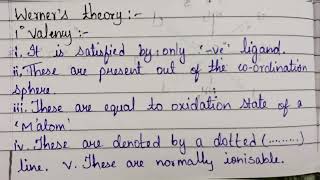 Werner's theory :-
1° Valency :-
i. It is satisfied by only '-ve' ligand.
ii. These are present out of the co-ordination
sphere.
iii. These are equal to oxidation state of a
'M atom'
iv. These are denoted by a dotted (.........)
line. v. These are normally ionisable.